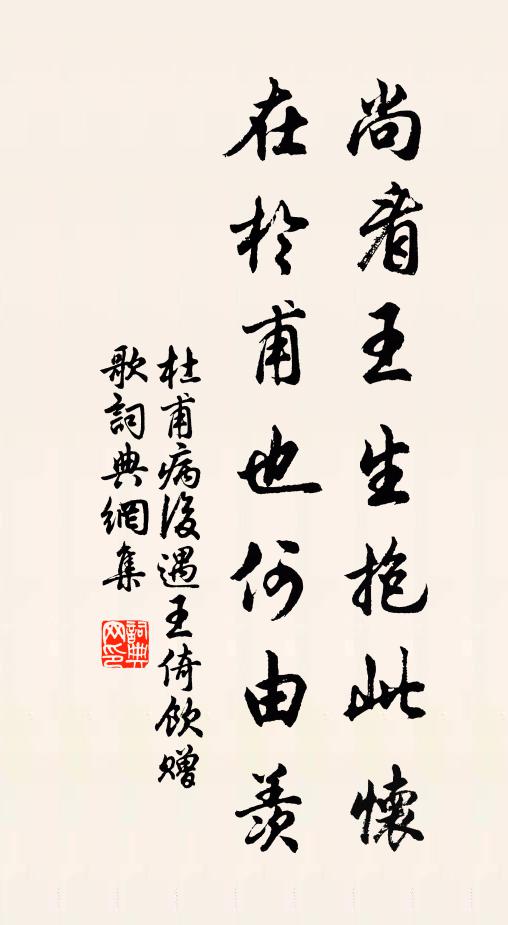 尚看王生抱此懷
在於甫也何由羨
杜甫病後遇王倚飲贈
歌詞典網集
詞典網印